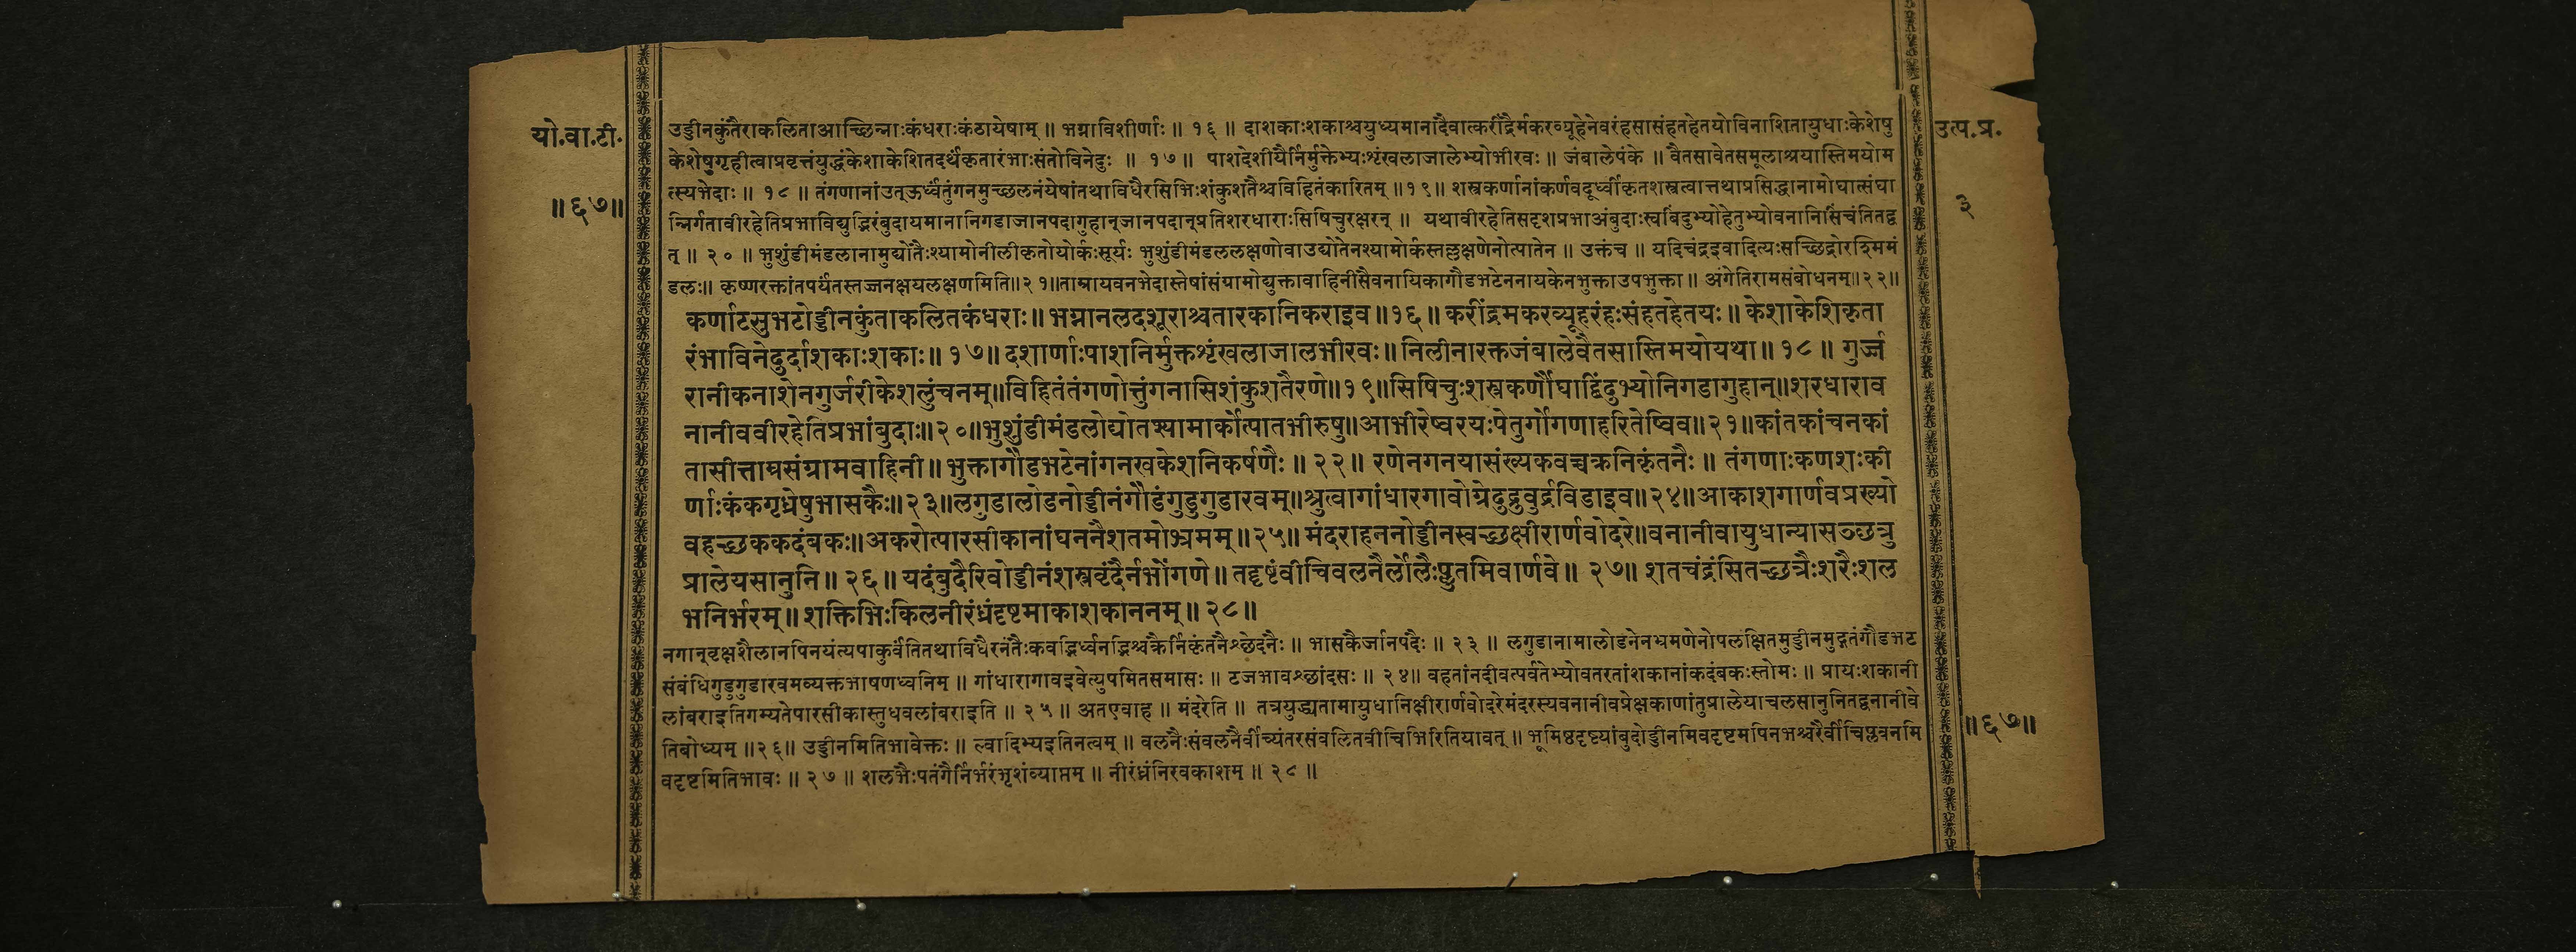 यो.वा.टी.
॥६७॥
उत्प.प्र.
३
उड्डीनकुंतैराकलिताआच्छिन्नाःकंधराःकंठायेषाम् ॥ भग्नाविशीर्णाः ॥ १६ ॥ दाशकाःशकाश्चयुध्यमानादैवात्करींद्रैर्मकरव्यूहेनेवरंहसासंहतहेतयोविनाशितायुधाःकेशेषु
केशेषुगृहीत्वाप्रवृत्तंयुद्धंकेशाकेशितदर्थंकृतारंभाःसंतोविनेदुः ॥ १७ ॥ पाशदेशीयैर्निर्मुक्तेभ्यःशृंखलाजालेभ्योभीरवः ॥ जंबालेपंके ॥ वैतसावेतसमूलाश्रयास्तिमयोम
त्स्यभेदाः ॥ १८ ॥ तंगणानांउत्ऊर्ध्वंतुंगनमुच्छलनंयेषांतथाविधैरसिभिःशंकुशतैश्चविहितंकारितम् ॥१९॥ शस्त्रकर्णानांकर्णवदूर्ध्वीकृतशस्त्रत्वात्तथाप्रसिद्धानामोघात्संघा
न्निर्गतावीरहेतिप्रभाविद्युद्भिरंबुदायमानानिगडाजानपदागुहान्जानपदान्प्रतिशरधाराःसिषिचुरक्षरन् ॥ यथावीरहेतिसदृशप्रभाअंबुदाःस्वबिंदुभ्योहेतुभ्योवनानिसिंचंतितद्व
त् ॥ २० ॥ भुशुंडीमंडलानामुद्योतैःश्यामोनीलीकृतोयोर्कःसूर्यः भुशुंडीमंडललक्षणोवाउद्योतेनश्यामोर्कस्तल्लक्षणेनोत्पातेन ॥ उक्तंच ॥ यदिचंद्रइवादित्यःसच्छिद्रोरश्मिमं
डलः॥ कृष्णरक्तांतपर्यंतस्तज्जनक्षयलक्षणमिति॥२१॥ताम्रायवनभेदास्तेषांसंग्रामोद्युक्तावाहिनीसैवनायिकागौडभटेननायकेनभुक्ताउपभुक्ता ॥ अंगेतिरामसंबोधनम्॥२२॥
कर्णाटसुभटोड्डीनकुंताकलितकंधराः॥ भग्नानलदशूराश्चतारकानिकराइव॥१६॥ करींद्रमकरव्यूहरंहःसंहतहेतयः॥ केशाकेशिकृता
रंभाविनेदुर्दाशकाःशकाः॥ १७॥ दशार्णाःपाशनिर्मुक्तशृंखलाजालभीरवः॥ निलीनारक्तजंबालेवैतसास्तिमयोयथा॥ १८॥ गुर्ज्ज
रानीकनाशेनगुर्जरीकेशलुंचनम्॥विहितंतंगणोत्तुंगनासिशंकुशतैरणे॥१९॥सिषिचुःशस्त्रकर्णौघाद्बिंदुभ्योनिगडागुहान्॥शरधाराव
नानीववीरहेतिप्रभांबुदाः॥२०॥भुशुंडीमंडलोद्योतश्यामार्कोत्पातभीरुषु॥आभीरेष्वरयःपेतुर्गोगणाहरितेष्विव॥२१॥कांतकांचनकां
तासीत्ताम्रसंग्रामवाहिनी॥ भुक्तागौडभटेनांगनखकेशनिकर्षणैः॥ २२॥ रणेनगनयासंख्यकवच्चक्रनिकृंतनैः॥ तंगणाःकणशःकी
र्णाःकंकगृध्रेषुभासकैः॥२३॥लगुडालोडनोड्डीनंगौडंगुडुगुडारवम्॥श्रुत्वागांधारगावोग्रेदुद्रुवुर्द्रविडाइव॥२४॥आकाशगार्णवप्रख्यो
वहच्छककदंबकः॥अकरोत्पारसीकानांघननैशतमोभ्रमम्॥२५॥ मंदराहननोड्डीनस्वच्छक्षीरार्णवोदरे॥वनानीवायुधान्यासञ्छत्रु
प्रालेयसानुनि॥ २६॥ यदंबुदैरिवोड्डीनंशस्त्रवृंदैर्नभोंगणे॥ तद्दृष्टंवीचिवलनैर्लोलैःप्लुतमिवार्णवे॥ २७॥ शतचंद्रंसितच्छत्रैःशरैःशल
भनिर्भरम्॥ शक्तिभिःकिलनीरंध्रंदृष्टमाकाशकाननम्॥ २८॥
नगान्वृक्षशैलानपिनयंत्यपाकुर्वंतितथाविधैरनंतैःकवद्भिर्ध्वनद्भिश्चक्रैर्निकृंतनैश्छेदनैः ॥ भासकैर्जानपदैः ॥ २३ ॥ लगुडानामालोडनेनभ्रमणेनोपलक्षितमुड्डीनमुद्गतंगौडभट
संबंधिगुडुगुडारवमव्यक्तभाषणध्वनिम् ॥ गांधारागावइवेत्युपमितसमासः ॥ टजभावश्छांदसः ॥ २४॥ वहतांनदीवत्पर्वतेभ्योवतरतांशकानांकदंबकःस्तोमः ॥ प्रायःशकानी
लांबराइतिगम्यतेपारसीकास्तुधवलांबराइति ॥ २५ ॥ अतएवाह ॥ मंदरेति ॥ तत्रयुद्ध्यतामायुधानिक्षीरार्णवोदरेमंदरस्यवनानीवप्रेक्षकाणांतुप्रालेयाचलसानुनितद्वनानीवे
तिबोध्यम् ॥२६॥ उड्डीनमितिभावेक्तः ॥ ल्वादिभ्यइतिनत्वम् ॥ वलनैःसंवलनैर्वीच्यंतरसंवलितवीचिभिरितियावत् ॥ भूमिष्ठदृष्ट्यांबुदोड्डीनमिवदृष्टमपिनभश्चरैर्वीचिप्लवनमि
वदृष्टमितिभावः ॥ २७ ॥ शलभैःपतंगैर्निर्भरंभृशंव्याप्तम् ॥ नीरंध्रंनिरवकाशम् ॥ २८ ॥
॥६७॥